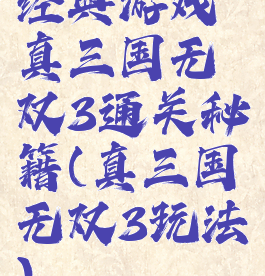 经典游戏
真三国无
双3通关秘
籍(真三国
无双3玩法
)